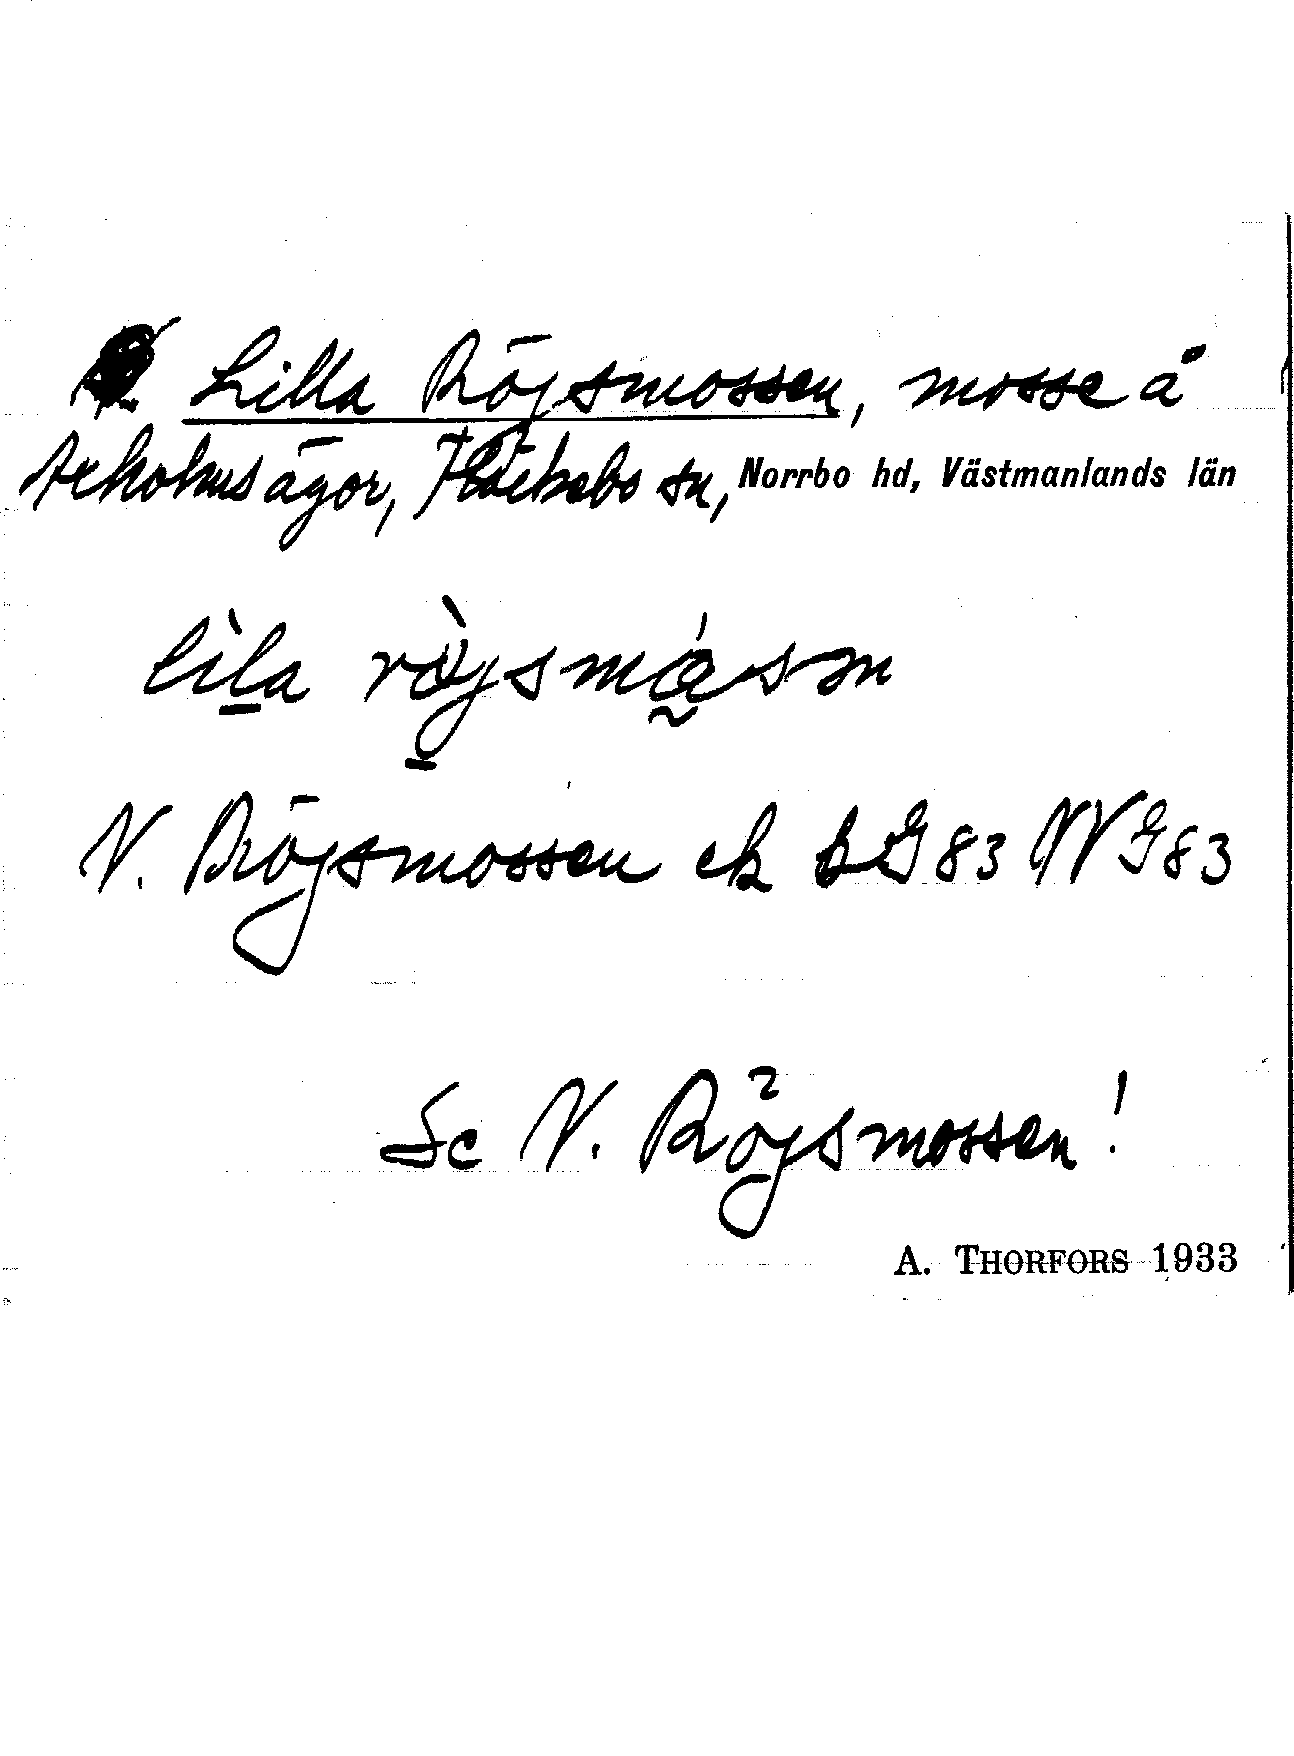 Lilla Röjsmossen, mosse å
ägor, Fläckebo sn, Norrbo hd, Västmanlands län
lìla ròjsmåsən
N. Röjsmossen ek bG83 NVG83
Se N. Röjsmossen!
A. THORFORS 1933